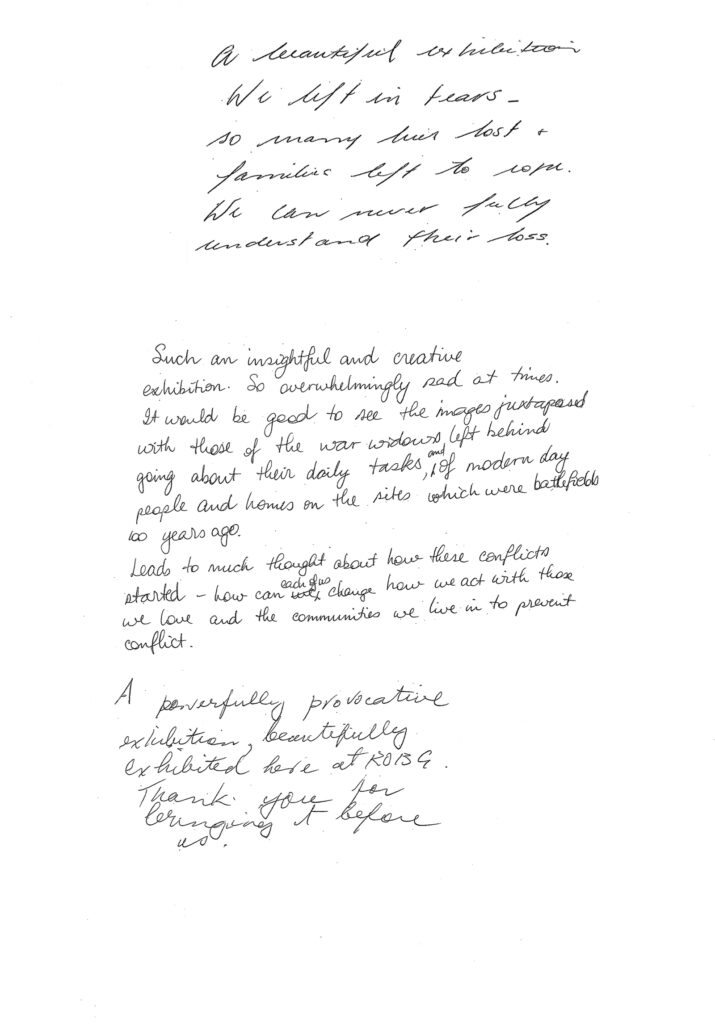 A beautiful exhibition
We left in tears -
so many lives lost +
families left to cope.
We can never fully
understand their loss.
Such an insightful and creative
exhibition. So overwhelmingly sad at times.
It would be good to see the images juxtaposed
with those of the war widows, left behind
going about their daily tasks, and of modern day
people and homes on the sites which were battlefields
100 years ago.
Leads to much thought about how these conflicts
started - how can each of us change how we act with those
we love and the communities we live in to prevent
conflict.
A powerfully provocative
exhibition, beautifully
exhibited here at ROBG.
Thank you for
bringing it before
us.